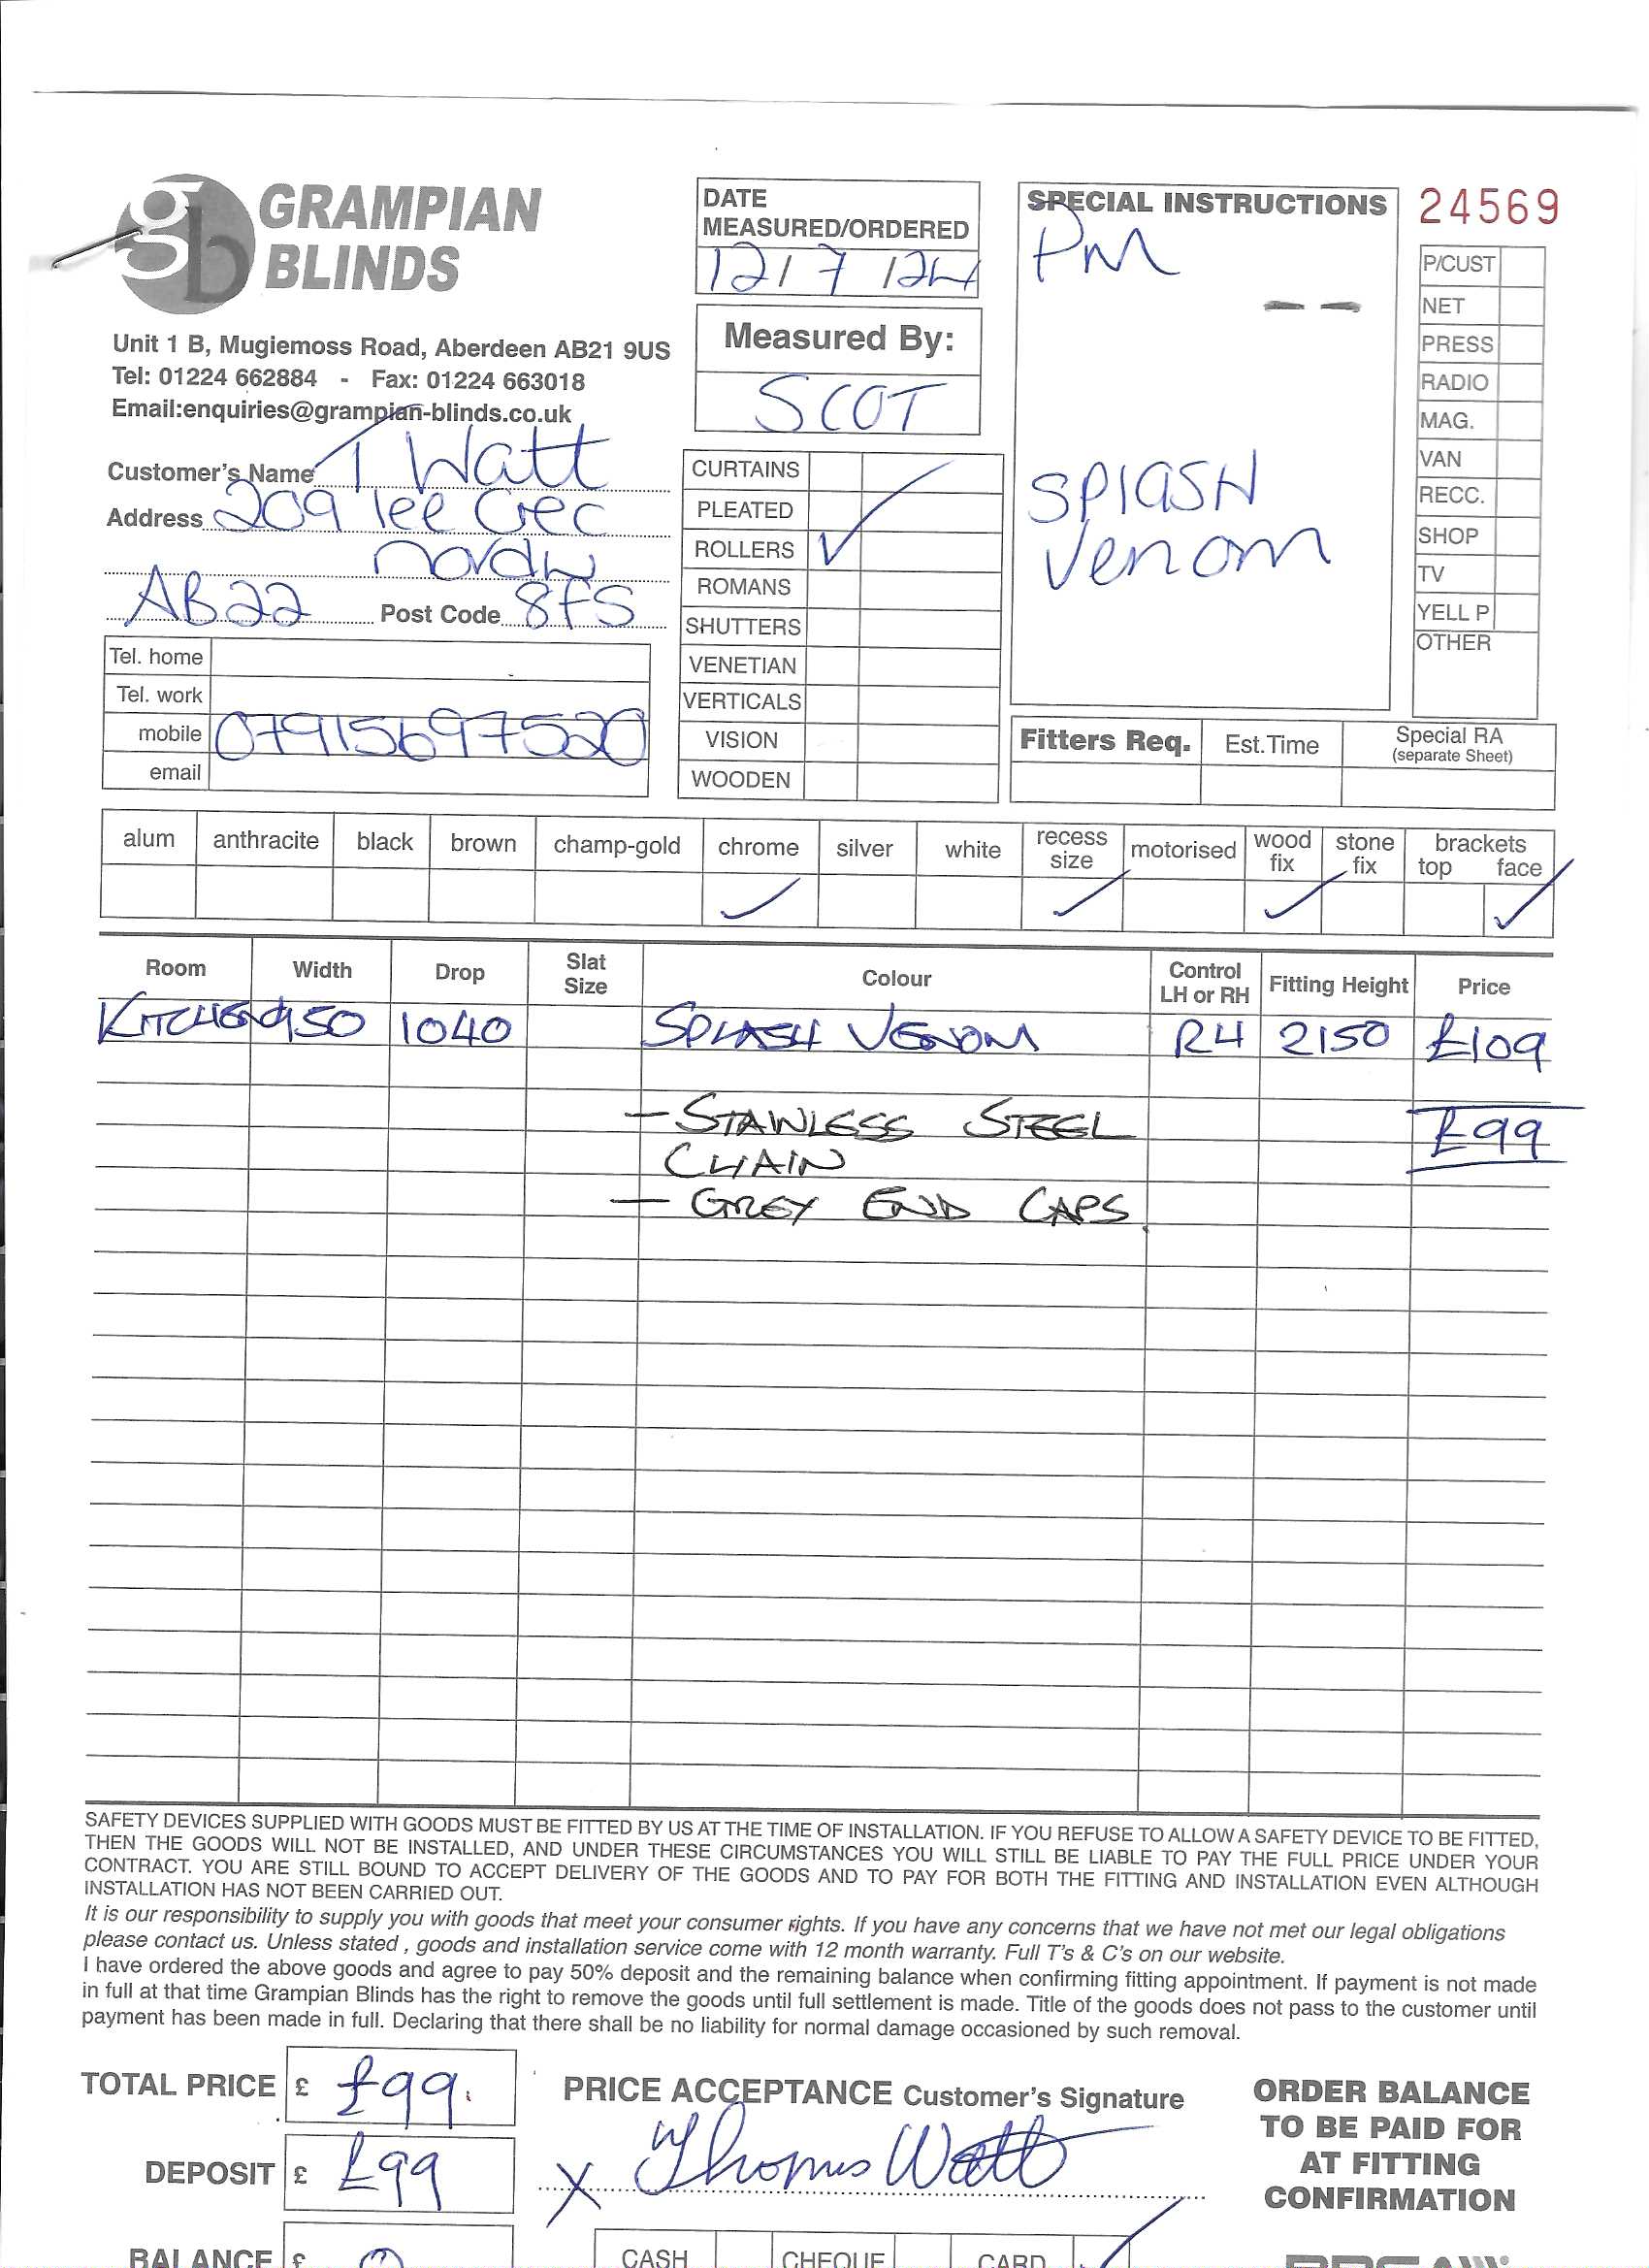 GRAMPIAN
BLINDS
Unit 1 B, Mugiemoss Road, Aberdeen AB21 9US
Tel: 01224 662884 - Fax: 01224 663018
Email:enquiries@grampian-blinds.co.uk
Customer's Name T Watt
Address 209 lee Crec
AB22 Post Code 8FS
Tel. home
Tel. work
mobile 07915697520
email
DATE
MEASURED/ORDERED
12/7/24
Measured By:
SCOT
CURTAINS
PLEATED
ROLLERS ✓
ROMANS
SHUTTERS
VENETIAN
VERTICALS
VISION
WOODEN
SPECIAL INSTRUCTIONS
PM
SPLASH
Venom
24569
P/CUST
NET
PRESS
RADIO
MAG.
VAN
RECC.
SHOP
TV
YELL P
OTHER
Fitters Req. Est.Time Special RA
(separate Sheet)
alum anthracite black brown champ-gold chrome silver white recess size motorised wood fix stone fix brackets top face
✓ ✓ ✓ ✓
Room Width Drop Slat Size Colour Control LH or RH Fitting Height Price
KITCHEN 950 1040 SPLASH VENOM RH 2150 £109
- STAINLESS STEEL £99
CHAIN
- GREY END CAPS
SAFETY DEVICES SUPPLIED WITH GOODS MUST BE FITTED BY US AT THE TIME OF INSTALLATION. IF YOU REFUSE TO ALLOW A SAFETY DEVICE TO BE FITTED,
THEN THE GOODS WILL NOT BE INSTALLED, AND UNDER THESE CIRCUMSTANCES YOU WILL STILL BE LIABLE TO PAY THE FULL PRICE UNDER YOUR
CONTRACT. YOU ARE STILL BOUND TO ACCEPT DELIVERY OF THE GOODS AND TO PAY FOR BOTH THE FITTING AND INSTALLATION EVEN ALTHOUGH
INSTALLATION HAS NOT BEEN CARRIED OUT.
It is our responsibility to supply you with goods that meet your consumer rights. If you have any concerns that we have not met our legal obligations
please contact us. Unless stated , goods and installation service come with 12 month warranty. Full T's & C's on our website.
I have ordered the above goods and agree to pay 50% deposit and the remaining balance when confirming fitting appointment. If payment is not made
in full at that time Grampian Blinds has the right to remove the goods until full settlement is made. Title of the goods does not pass to the customer until
payment has been made in full. Declaring that there shall be no liability for normal damage occasioned by such removal.
TOTAL PRICE £ £99.
DEPOSIT £ £99
BALANCE £ 0
PRICE ACCEPTANCE Customer's Signature
X Thomas Watt
CASH CHEQUE CARD ✓
ORDER BALANCE
TO BE PAID FOR
AT FITTING
CONFIRMATION